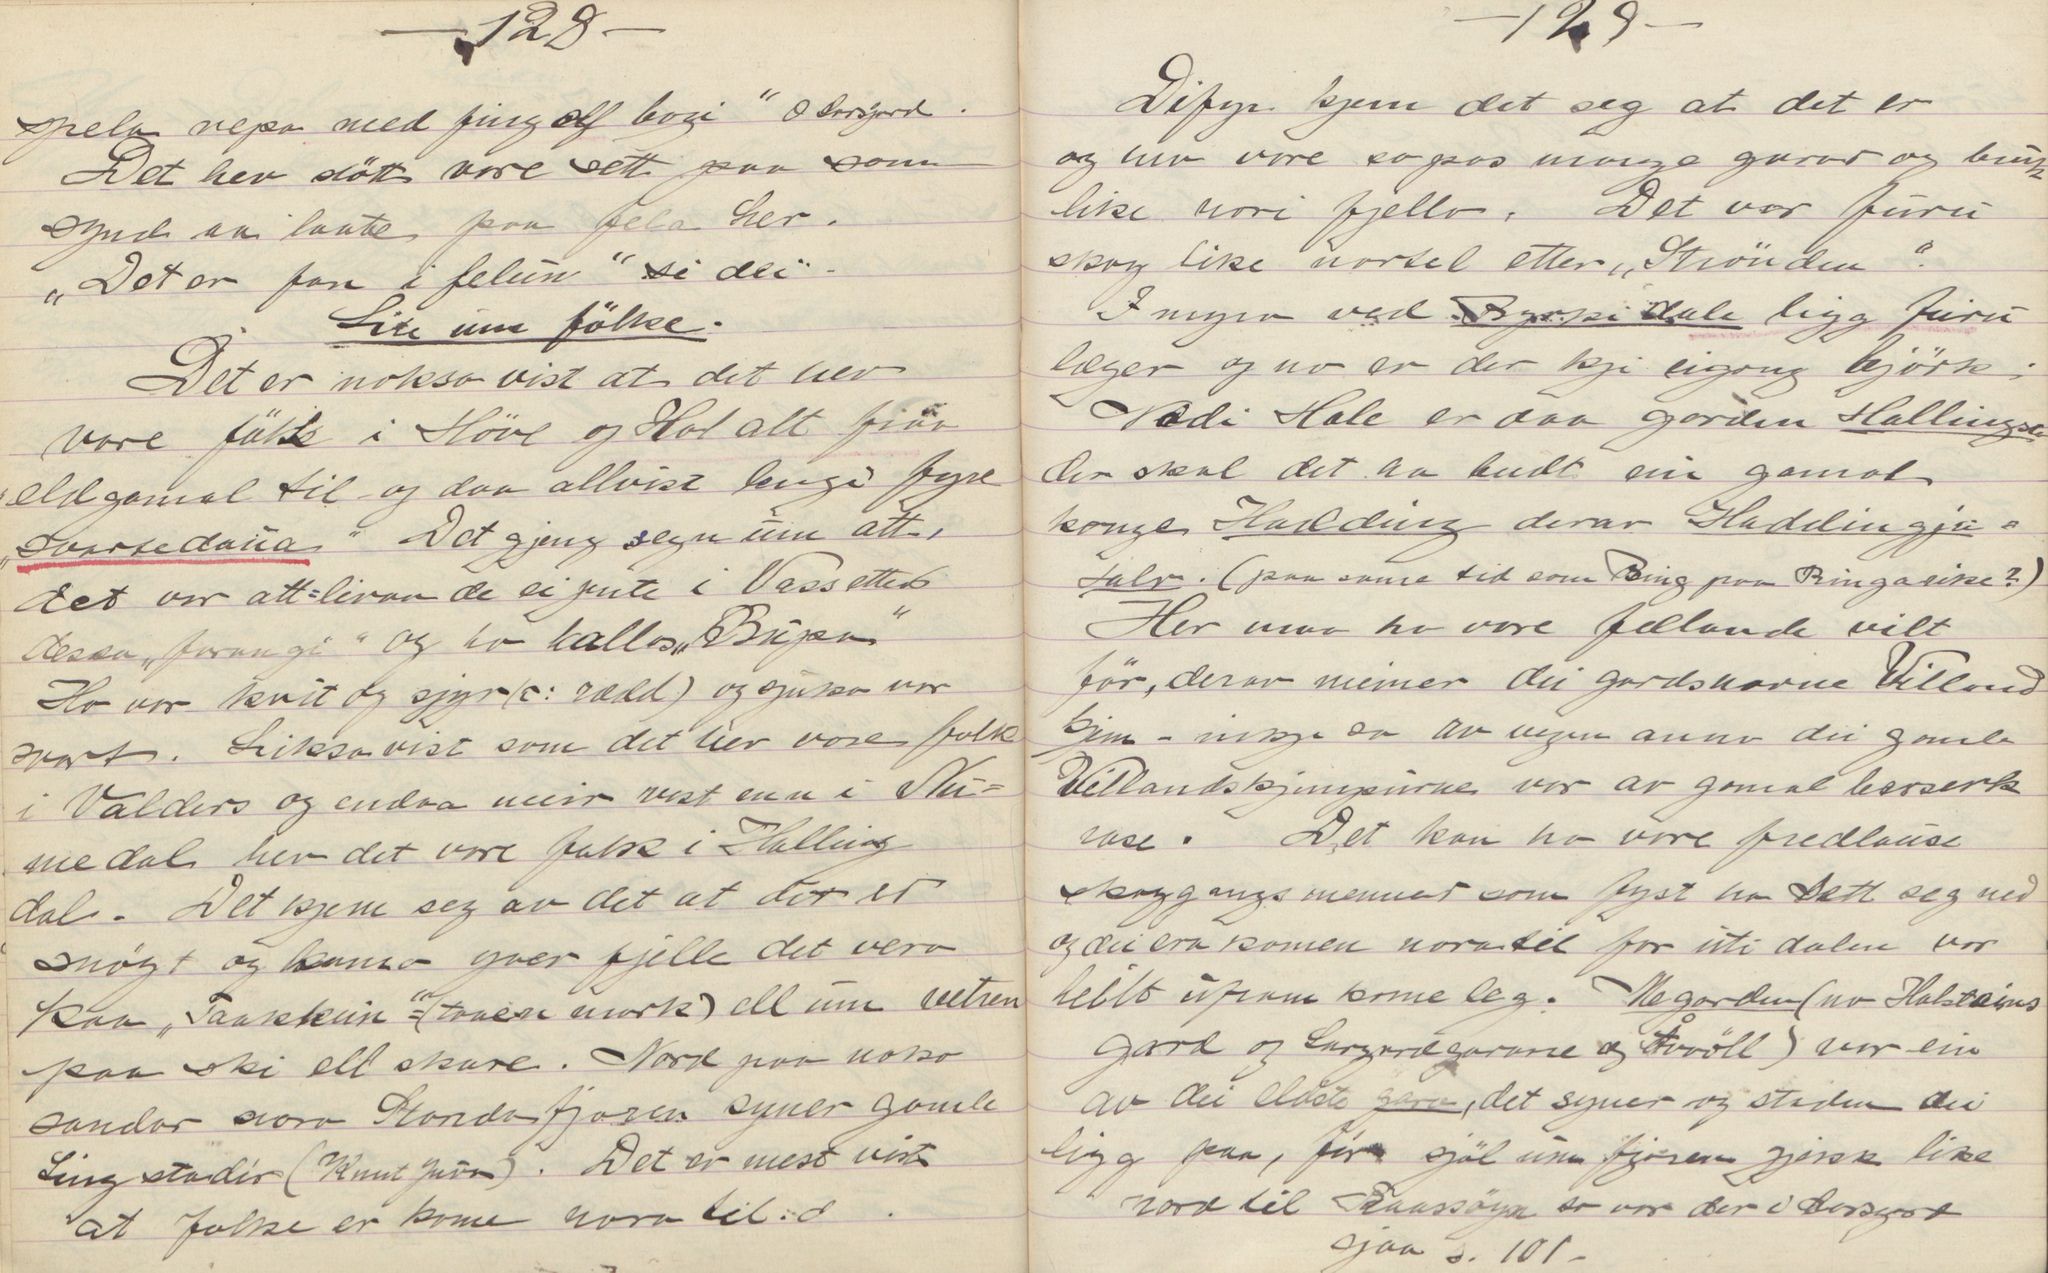 - 128 -
spela vepa med fing elf bogi" O Larsgard.
Det hev stött vore sett paa som
synd aa laate paa fela her.
"Det er fan i felun" si dei.
Lite um fölke.
Det er nokso vist at det hev
vore fölk i Höve og Hol alt fraa
eldgamal til og daa allvist lengi fyre
"svartedaua" Det gjeng segn um att,
det var att=livaa de ei jente i Vassetten
dessa "farangi" og ho kallas "Rupa"
Ho var kvit og sjyr (c: rædd) og sjuka var
svart. Likso vist som det hev vore folk
i Valders og endaa meir vest enn i Nu=
medal hev det vore folk i Halling
dal. Det kjem seg av det at det er
snögt og koma yver fjelle det vera
paa "Taakkun" = (taaen mork) ell um vetren
paa ski ell skare. Nord paa noko
sandar nora Stondafjoren syner gamle
Ling stadir (Knut Jura). Det er mest vist
at folke er kome nora til. d
- 129 -
Difyr kjem det seg at det er
og hev vore so pas mange garar og bruk
like nori fjello. Det var furu
skog like nortel etter "Strönden".
I myro ved dale ligg furu
læger og no er der kji eigong björk.
Nedi Hole er daa garden Hallings
der skal det ha budt ein gamal
konge Hadding derav Haddingja=
dalr. (paa same tid som Ring paa Ringarike?)
Her maa ha vore fællande vilt
för, derav meiner dei gardsnavne Villand
kjem - inkje so av vegen anna dei gamle
Villandskjempurne var av gamal berserk
rase. Det kan ha vore fredlause
skoggangsmennar som fyst ha sett seg ned
og dei era komen nora til for uti dalen var
heilt ufram komeleg. Megarden (no Holsteins
gard og Largardgarane og Åvöll) var ein
av dei elste gara, det syner og staden dei
ligg paa, för sjöl um fjoren gjekk like
nord til so var der i Larsgard
sjaa s. 101.